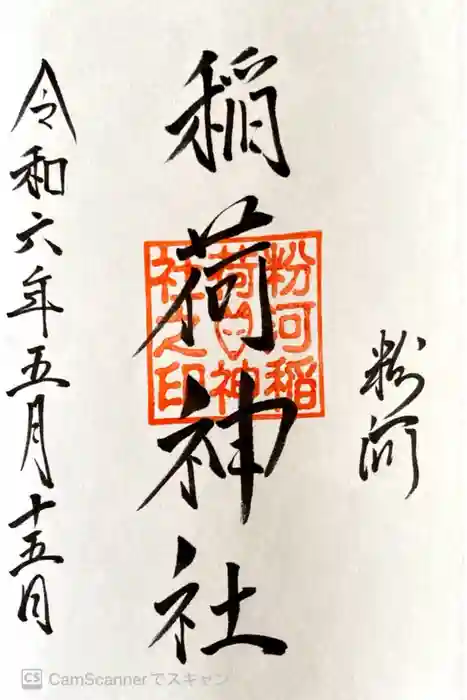 粉河
稲荷神社
粉河稲
荷神
社之印
令和六年五月十五日
CS CamScannerでスキャン